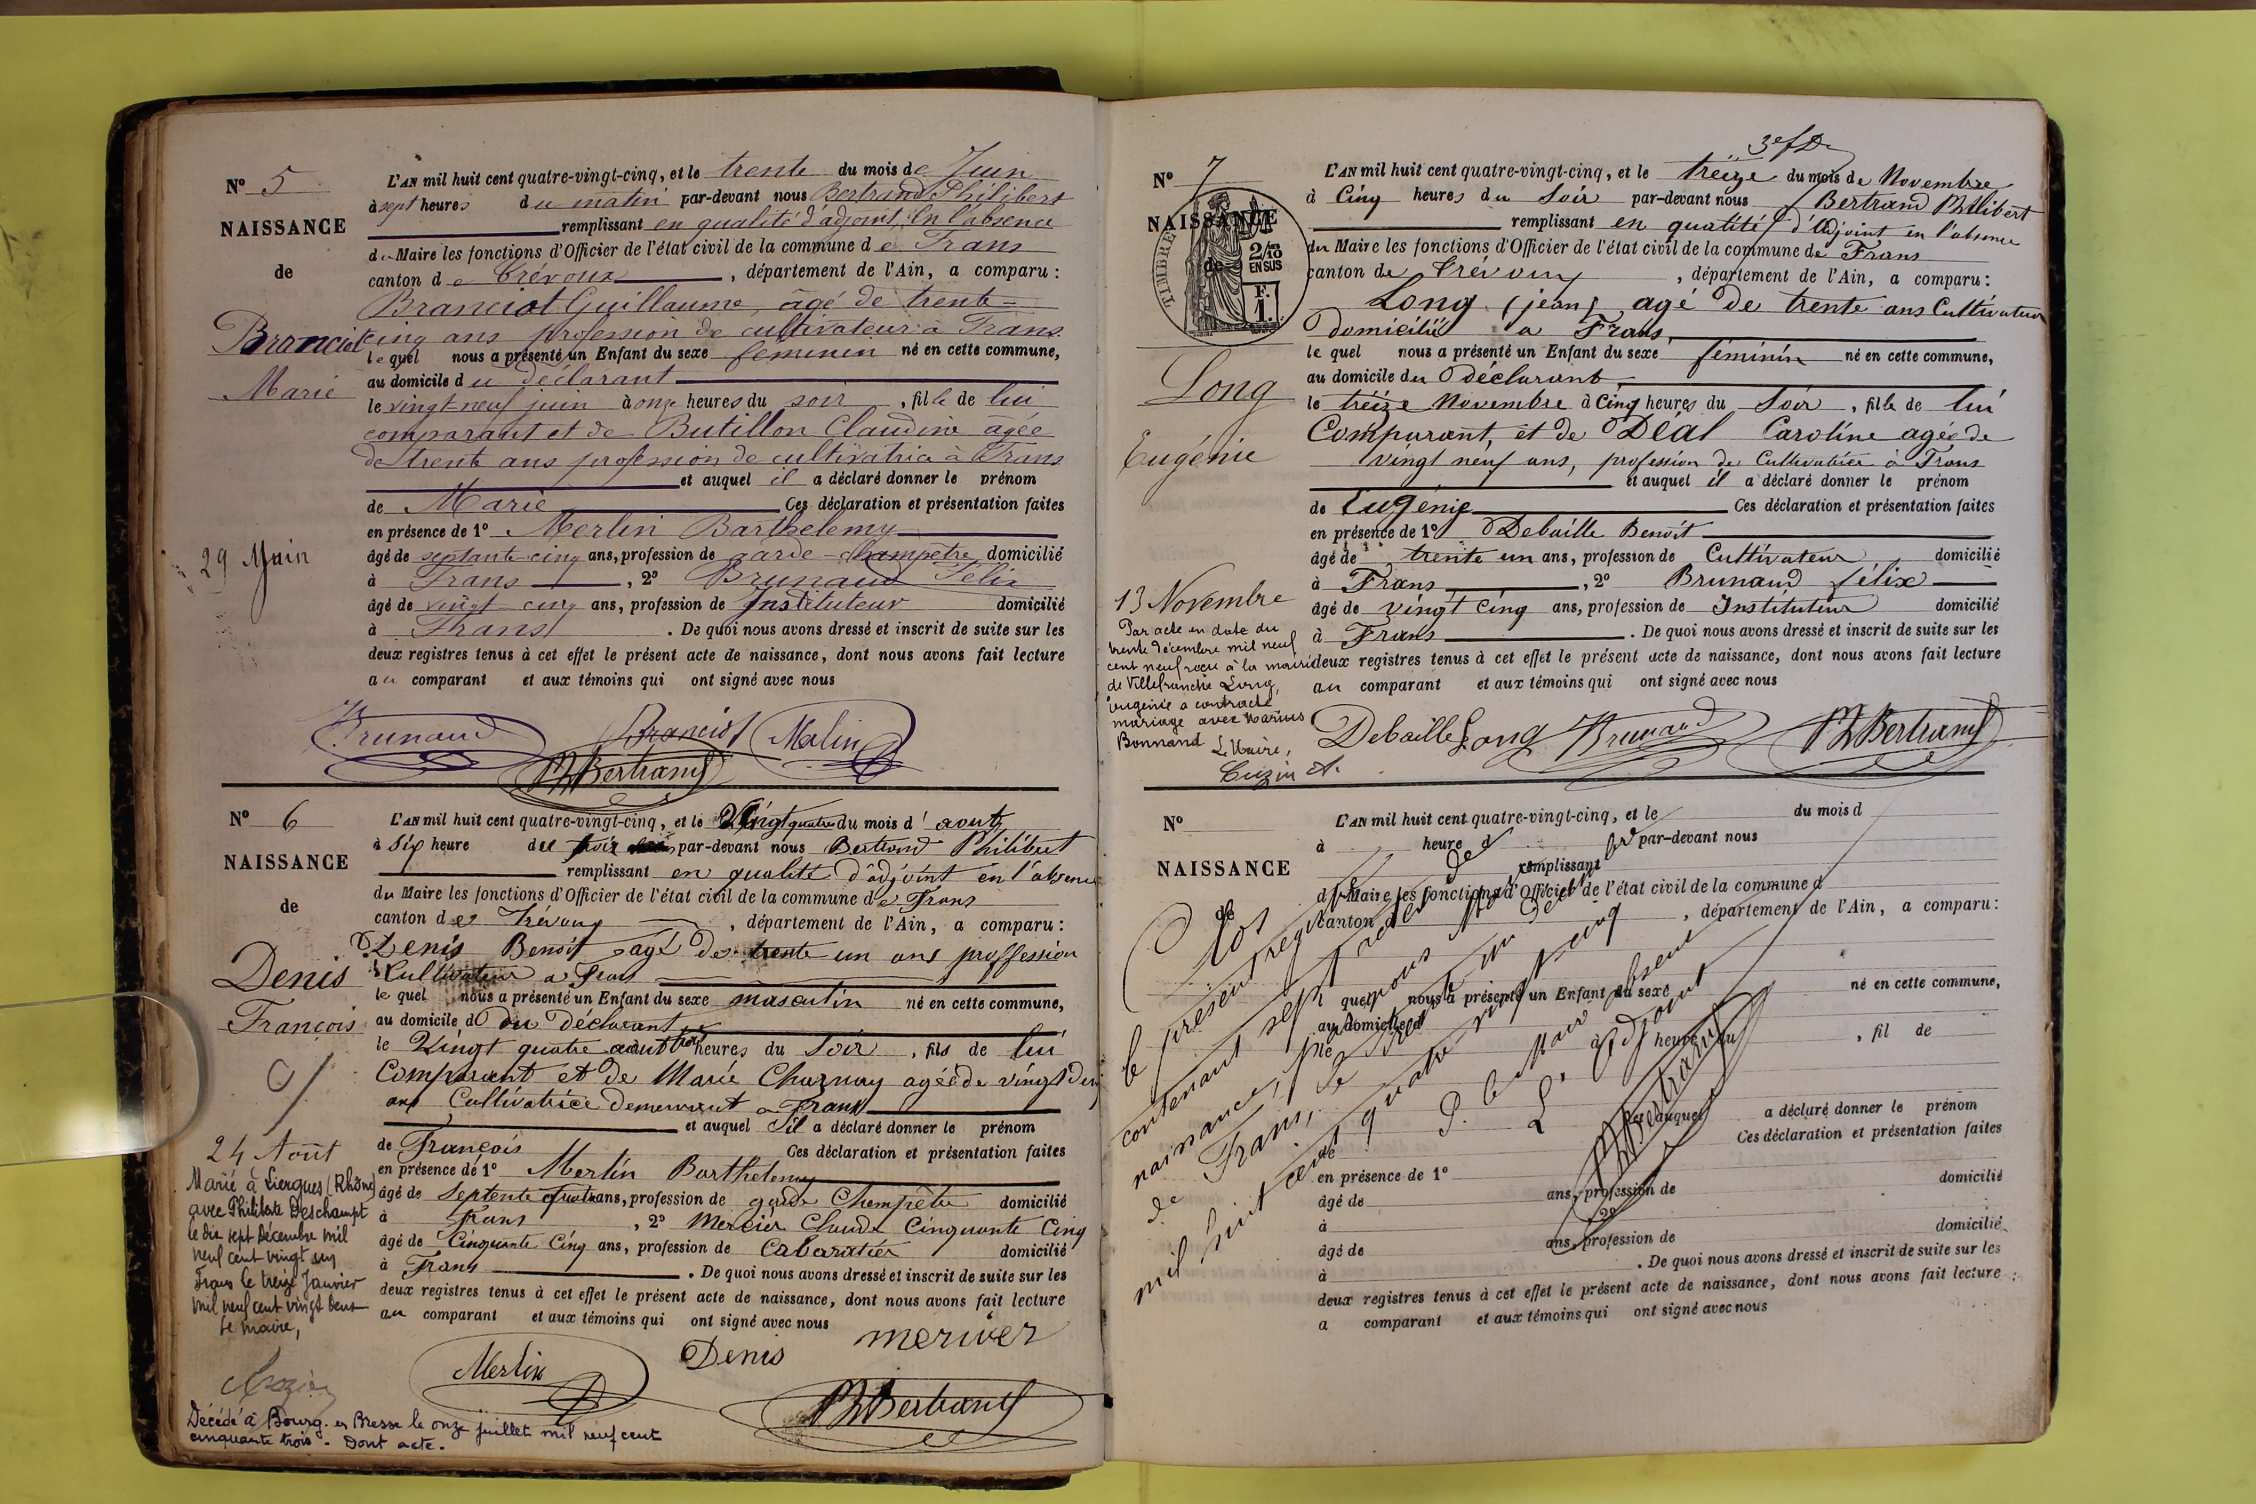 N° 5
NAISSANCE
de
Branciot
Marie
29 Juin
L'AN mil huit cent quatre-vingt-cinq, et le trente du mois de Juin
à sept heures du matin par-devant nous Bertrand Philibert
remplissant en qualité d'adjoint, En l'absence
du Maire les fonctions d'Officier de l'état civil de la commune de Frans
canton de Trévoux, département de l'Ain, a comparu :
Branciot Guillaume, âgé de trente-
cinq ans profession de cultivateur à Frans
le quel nous a présenté un Enfant du sexe féminin né en cette commune,
au domicile du déclarant
le vingt-neuf juin à onze heures du soir, fille de lui
comparant et de Butillon Claudine âgée
de trente ans profession de cultivatrice à Frans
et auquel il a déclaré donner le prénom
de Marie Ces déclaration et présentation faites
en présence de 1° Merlin Barthelemy
âgé de septante-cinq ans, profession de garde-champêtre domicilié
à Frans, 2° Brunaud Félix
âgé de vingt cinq ans, profession de Instituteur domicilié
à Frans. De quoi nous avons dressé et inscrit de suite sur les
deux registres tenus à cet effet le présent acte de naissance, dont nous avons fait lecture
au comparant et aux témoins qui ont signé avec nous
Brunaud Branciot Merlin
Ph Bertrand
N° 6
NAISSANCE
de
Denis
François
24 Août
Marié à Liergues (Rhône)
avec Philiberte Deschampt
le dix sept Décembre mil
neuf cent vingt un
Frans le treize Janvier
mil neuf cent vingt deux
Le maire,
Décédé à Bourg en Bresse le onze juillet mil neuf cent
cinquante trois. Dont acte.
L'AN mil huit cent quatre-vingt-cinq, et le Vingt quatre du mois d'août
à six heure du soir par-devant nous Bertrand Philibert
remplissant en qualité d'adjoint en l'absence
du Maire les fonctions d'Officier de l'état civil de la commune de Frans
canton de Trévoux, département de l'Ain, a comparu :
Denis Benoît agé de trente un ans proffession
Cultivateur a Frans
le quel nous a présenté un Enfant du sexe masculin né en cette commune,
au domicile d du Déclarant
le Vingt quatre août trois heures du Soir, fils de lui
Comparant et de Marie Chaznay agée de vingt deux
ans Cultivatrice demeurant a Frans
et auquel il a déclaré donner le prénom
de François Ces déclaration et présentation faites
en présence de 1° Merlin Barthelemy
âgé de Septente quatre ans, profession de garde Champêtre domicilié
à Frans, 2° Mercier Claude Cinquante Cinq
âgé de Cinquante Cinq ans, profession de Cabaratier domicilié
à Frans. De quoi nous avons dressé et inscrit de suite sur les
deux registres tenus à cet effet le présent acte de naissance, dont nous avons fait lecture
au comparant et aux témoins qui ont signé avec nous
Merlin Denis merier
Ph Bertrand
3e f
N° 7
NAISSANCE
de
TIMBRE
2/10
EN SUS
F.
1.
Long
Eugénie
13 Novembre
Par acte en date du
trente décembre mil neuf
cent neuf reçu à la mairie
de Villefranche Long,
Eugénie a contracté
mariage avec Marius
Bonnand Le Maire,
Cuzin A.
L'AN mil huit cent quatre-vingt-cinq, et le treize du mois de Novembre
à Cinq heures du Soir par-devant nous Bertrand Philibert
remplissant en qualité d'Adjoint en l'absence
du Maire les fonctions d'Officier de l'état civil de la commune de Frans
canton de Trévoux, département de l'Ain, a comparu :
Long (jean) agé de trente ans Cultivateur
domicilié a Frans,
le quel nous a présenté un Enfant du sexe féminin né en cette commune,
au domicile du Déclarant
le treize Novembre à Cinq heures du Soir, fille de lui
Comparant, et de Déal Caroline agée de
vingt neuf ans, profession de Cultivatrice à Frans
et auquel il a déclaré donner le prénom
de Eugénie Ces déclaration et présentation faites
en présence de 1° Debaille Benoit
âgé de trente un ans, profession de Cultivateur domicilié
à Frans, 2° Brunaud félix
âgé de vingt cinq ans, profession de Instituteur domicilié
à Frans. De quoi nous avons dressé et inscrit de suite sur les
deux registres tenus à cet effet le présent acte de naissance, dont nous avons fait lecture
au comparant et aux témoins qui ont signé avec nous
Debaille Long Brunaud Ph Bertrand
N°
NAISSANCE
de
L'AN mil huit cent quatre-vingt-cinq, et le du mois d
à heure d par-devant nous
remplissant
d Maire les fonctions d'Officier de l'état civil de la commune d
canton d, département de l'Ain, a comparu :
quel nous a présenté un Enfant du sexe né en cette commune,
au domicile d
le à heure du, fil de
et auquel a déclaré donner le prénom
de Ces déclaration et présentation faites
en présence de 1°
âgé de ans, profession de domicilié
à 2°
âgé de ans, profession de domicilié
à. De quoi nous avons dressé et inscrit de suite sur les
deux registres tenus à cet effet le présent acte de naissance, dont nous avons fait lecture
a comparant et aux témoins qui ont signé avec nous
Clos
le présent registre
contenant sept actes de
naissance, par nous
de Frans, le trente un décembre
mil huit cent quatre vingt cinq
P. le Maire absent
L'adjoint
Ph Bertrand